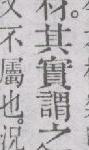 材。其實謂之
又不屬也。況